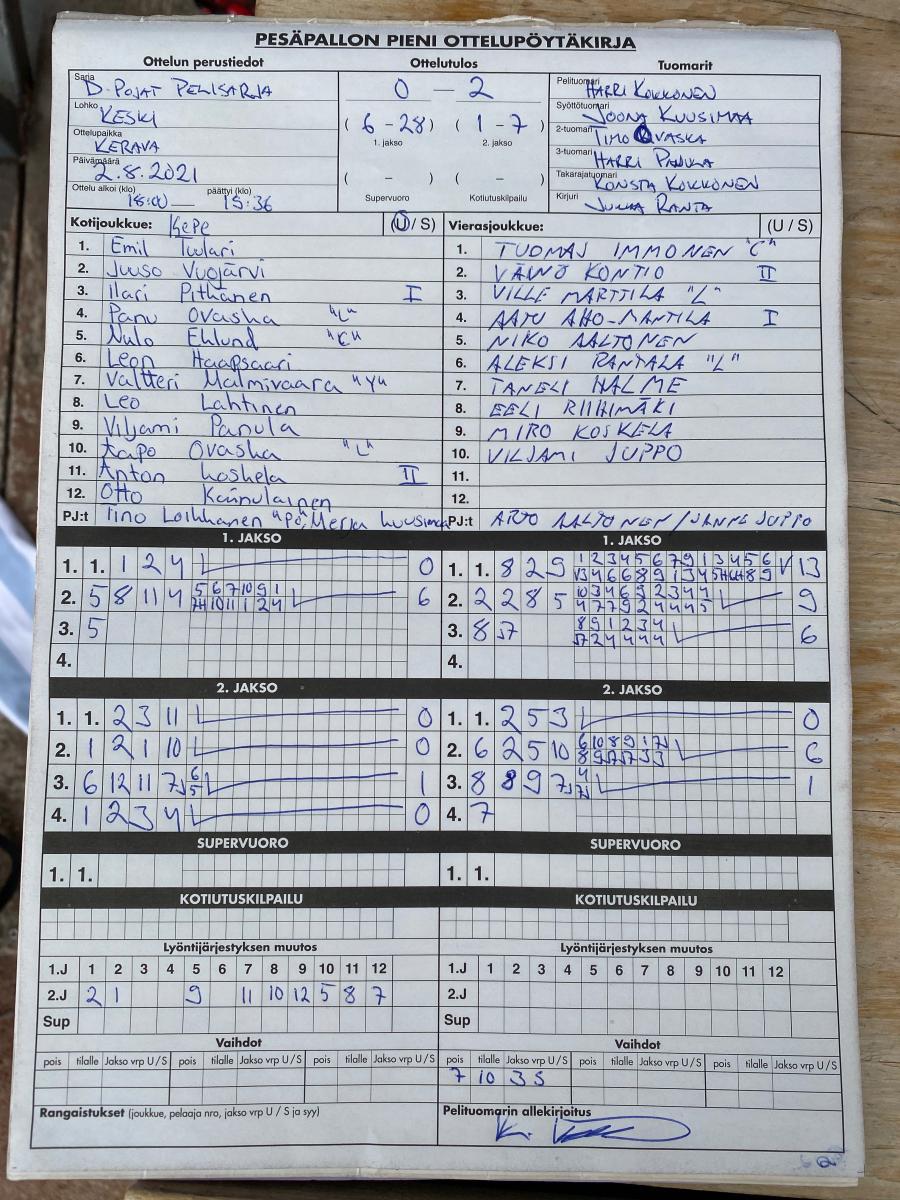 PESÄPALLON PIENI OTTELUPÖYTÄKIRJA
Ottelun perustiedot
Sarja
D-POJAT PELISARJA
Lohko
KESKI
Ottelupaikka
KERAVA
Päivämäärä
2.8.2021
Ottelu alkoi (klo) päättyi (klo)
18:00 — 18:36
Ottelutulos
0 — 2
( 6 - 28 ) ( 1 - 7 )
1. jakso 2. jakso
( - ) ( - )
Supervuoro Kotiutuskilpailu
Tuomarit
Pelituomari
HARRI KOKKONEN
Syöttötuomari
JOONA KUUSIMAA
2-tuomari
TIMO OVASKA
3-tuomari
HARRI
Takarajatuomari
KONSTA KOKKONEN
Kirjuri
JUKKA RANTA
Kotijoukkue: KePe (U / S)
1. Emil Tuulari
2. Juuso Vuojärvi
3. Ilari Pitkänen I
4. Panu Ovaska "L"
5. Nulo Ehlund "C"
6. Leon Haapsaari
7. Valtteri Malmivaara "V"
8. Leo Lahtinen
9. Viljami Panula
10. Aapo Ovaska "L"
11. Anton Koskela II
12. Otto Kainulainen
PJ:t Timo Loikkanen "PJ", Merja Kuusimaa
Vierasjoukkue: (U / S)
1. TUOMAS IMMONEN "C"
2. VÄINÖ KONTIO II
3. VILLE MARTTILA "L"
4. AATU AHO-MANTILA I
5. NIKO AALTONEN
6. ALEKSI RANTALA "L"
7. TANELI HALME
8. EELI RIIHIMÄKI
9. MIRO KOSKELA
10. VILJAMI JUPPO
11.
12.
PJ:t ARTO AALTONEN / JANNE JUPPO
1. JAKSO
1. 1. 1 2 4 0
2. 5 8 11 4 5 6 7 10 9 1 6
7H 10 11 1 2 4
3. 5
4.
1. JAKSO
1. 1. 8 2 9 1 2 3 4 5 6 7 9 1 3 4 5 6 V 13
2. 2 2 8 5 10 3 4 6 9 2 3 4 4 9
4 7 7 9 2 4 4 4 5
3. 8 J7 8 9 1 2 3 4 6
J7 2 4 4 4 4
4.
2. JAKSO
1. 1. 2 3 11 0
2. 1 2 1 10 0
3. 6 12 11 7J 6 1
5
4. 1 2 3 4 0
2. JAKSO
1. 1. 2 5 3 0
2. 6 2 5 10 6 10 8 9 1 7J 6
8 9 7J J7 3 3
3. 8 8 9 7J 4 1
7J
4. 7
SUPERVUORO
1. 1.
SUPERVUORO
1. 1.
KOTIUTUSKILPAILU
KOTIUTUSKILPAILU
Lyöntijärjestyksen muutos
1.J 1 2 3 4 5 6 7 8 9 10 11 12
2.J 2 1 9 11 10 12 5 8 7
Sup
Lyöntijärjestyksen muutos
1.J 1 2 3 4 5 6 7 8 9 10 11 12
2.J
Sup
Vaihdot
pois tilalle Jakso vrp U / S pois tilalle Jakso vrp U / S pois tilalle Jakso vrp U / S
Vaihdot
pois tilalle Jakso vrp U / S pois tilalle Jakso vrp U / S pois tilalle Jakso vrp U / S
7 10 3 S
Rangaistukset (joukkue, pelaaja nro, jakso vrp U / S ja syy)
Pelituomarin allekirjoitus